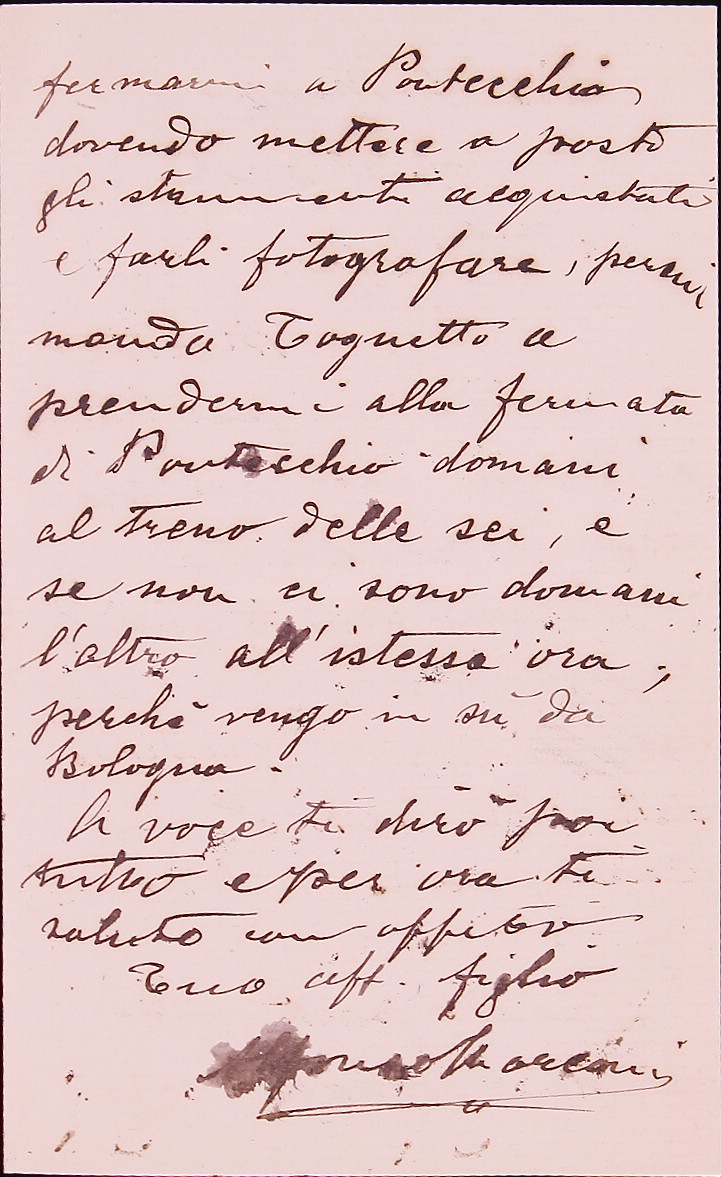 fermarmi a Pontecchio
dovendo mettere a posto
gli strumenti acquistati
e farli fotografare, perciò
manda Tognetto a
prendermi alla fermata
di Pontecchio domani
al treno delle sei, e
se non ci sono domani
l'altro all'istessa ora;
perchè vengo in su da
Bologna.
A voce ti dirò poi
tutto e per ora ti
saluto con affetto
Tuo aff. figlio
Alfonso Marconi